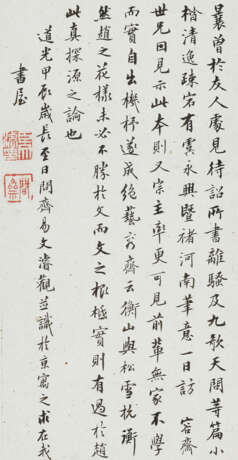 曩曾於友人處見待詔所書離騷及九歌天問等篇小
楷清逸疎宕有虞永興暨褚河南筆意一日訪容齋
世兄回見示此本則又宗主率更可見前輩無家不學
而實自出機杼遂成絕藝容齋云衡山與松雪抗衡
然趙之花樣未必不勝於文而文之根柢實則有過於趙
此真探源之論也
道光甲辰歲長至日問齊易文濬觀並識於京寓之求在我
書屋